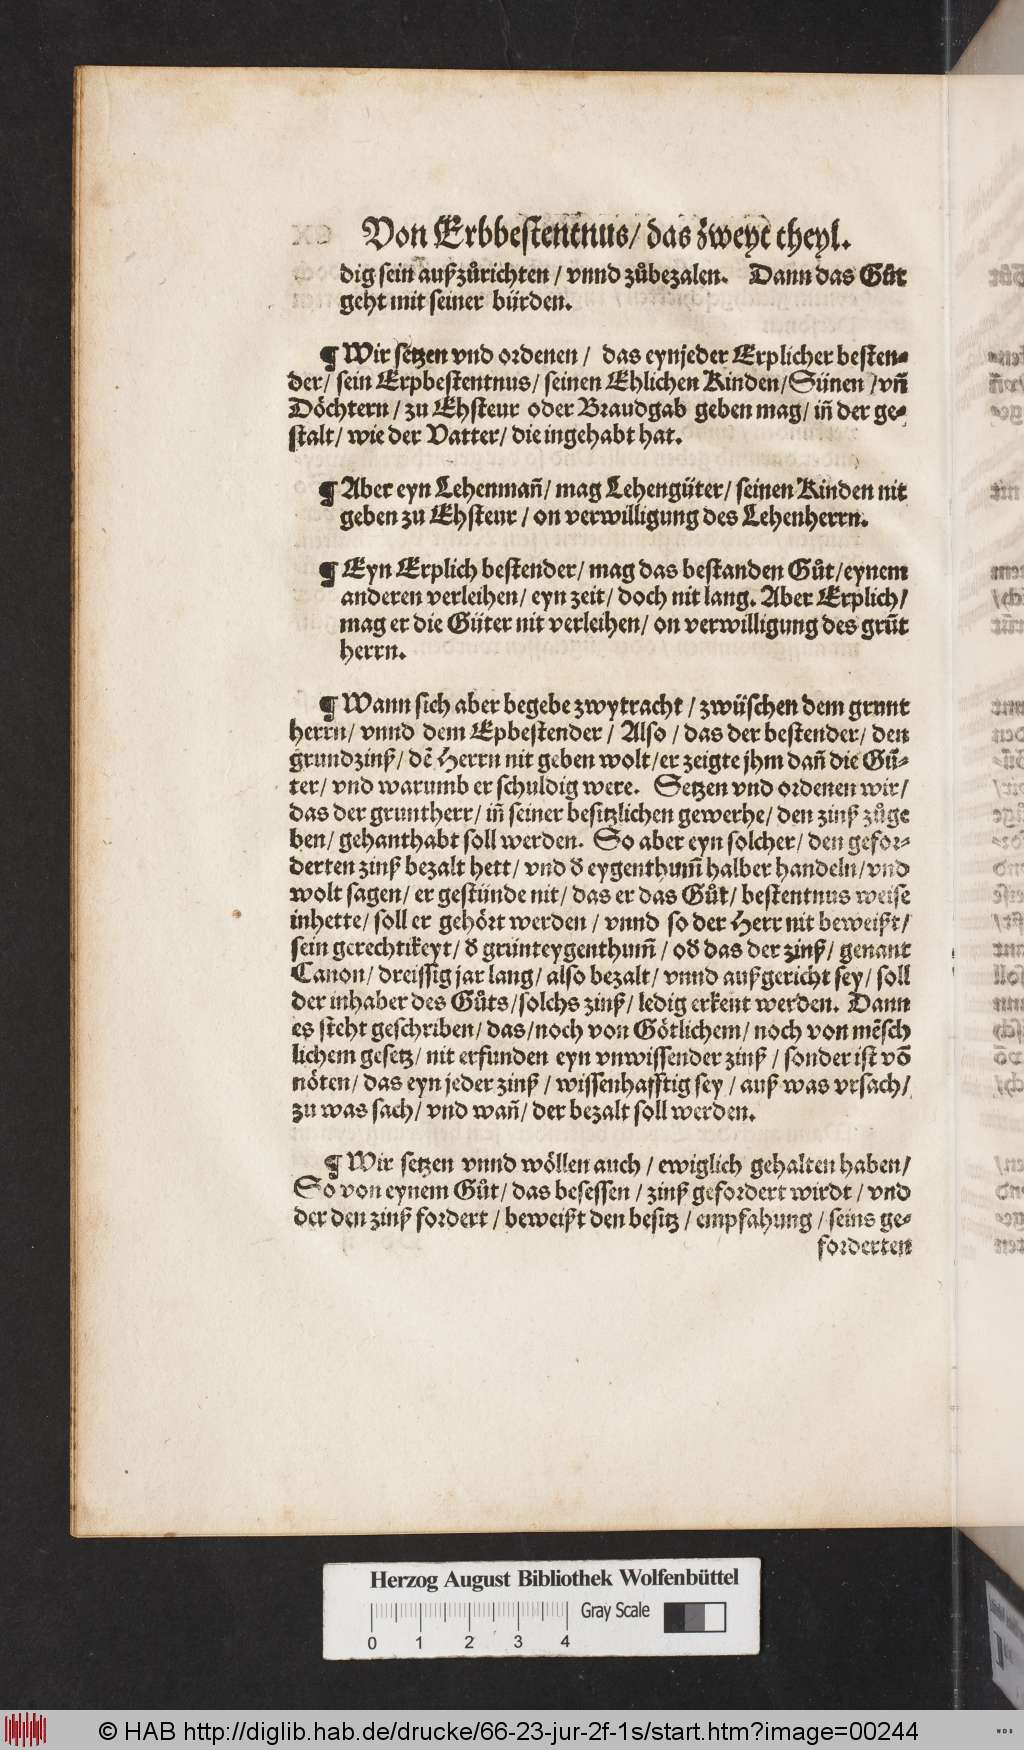 Von Erbbestentnus/ das zweyt theyl.
dig sein außzůrichten / vnnd zůbezalen. Dann das Gůt
geht mit seiner bürden.
¶ Wir setzen vnd ordenen / das eynjeder Erplicher besten-
der/ sein Erpbestentnus/ seinen Ehlichen Kinden/Sünen /vñ
Döchtern / zu Ehsteur oder Braudgab geben mag/ iñ der ge-
stalt/ wie der Vatter/ die ingehabt hat.
¶ Aber eyn Lehenmañ/ mag Lehengüter/ seinen Kinden nit
geben zu Ehsteur / on verwilligung des Lehenherrn.
¶ Eyn Erplich bestender/ mag das bestanden Gůt/eynem
anderen verleihen/ eyn zeit/ doch nit lang. Aber Erplich/
mag er die Güter nit verleihen/ on verwilligung des grũt
herrn.
¶ Wann sich aber begebe zwytracht / zwüschen dem grunt
herrn/ vnnd dem Epbestender / Also / das der bestender/ den
grundzinß/ dẽ Herrn nit geben wolt/er zeigte jhm dañ die Gü-
ter/ vnd warumb er schuldig were. Setzen vnd ordenen wir/
das der gruntherr/ iñ seiner besitzlichen gewerhe/ den zinß zůge
ben/ gehanthabt soll werden. So aber eyn solcher/ den gefor-
derten zinß bezalt hett/ vnd d̕ eygenthum̃ halber handeln/vnd
wolt sagen/ er gestünde nit/ das er das Gůt/ bestentnus weise
inhette/ soll er gehört werden / vnnd so der Herr nit beweißt/
sein gerechtikeyt/ d̕ grunteygenthum̃ / od̕ das der zinß/ genant
Canon/ dreissig jar lang/ also bezalt/ vnnd außgericht sey/ soll
der inhaber des Gůts/solchs zinß/ ledig erkent werden. Dann
es steht geschriben/ das/noch von Götlichem/ noch von mẽsch
lichem gesetz/ nit erfunden eyn vnwissender zinß / sonder ist võ
nöten/ das eyn jeder zinß / wissenhafftig sey / auß was vrsach/
zu was sach/ vnd wañ/ der bezalt soll werden.
¶ Wir setzen vnnd wöllen auch / ewiglich gehalten haben/
So von eynem Gůt/ das besessen / zinß gefordert wirdt / vnd
der den zinß fordert / beweißt den besitz / empfahung / seins ge-
forderten
Herzog August Bibliothek Wolfenbüttel
Gray Scale
0 1 2 3 4
© HAB http://diglib.hab.de/drucke/66-23-jur-2f-1s/start.htm?image=00244